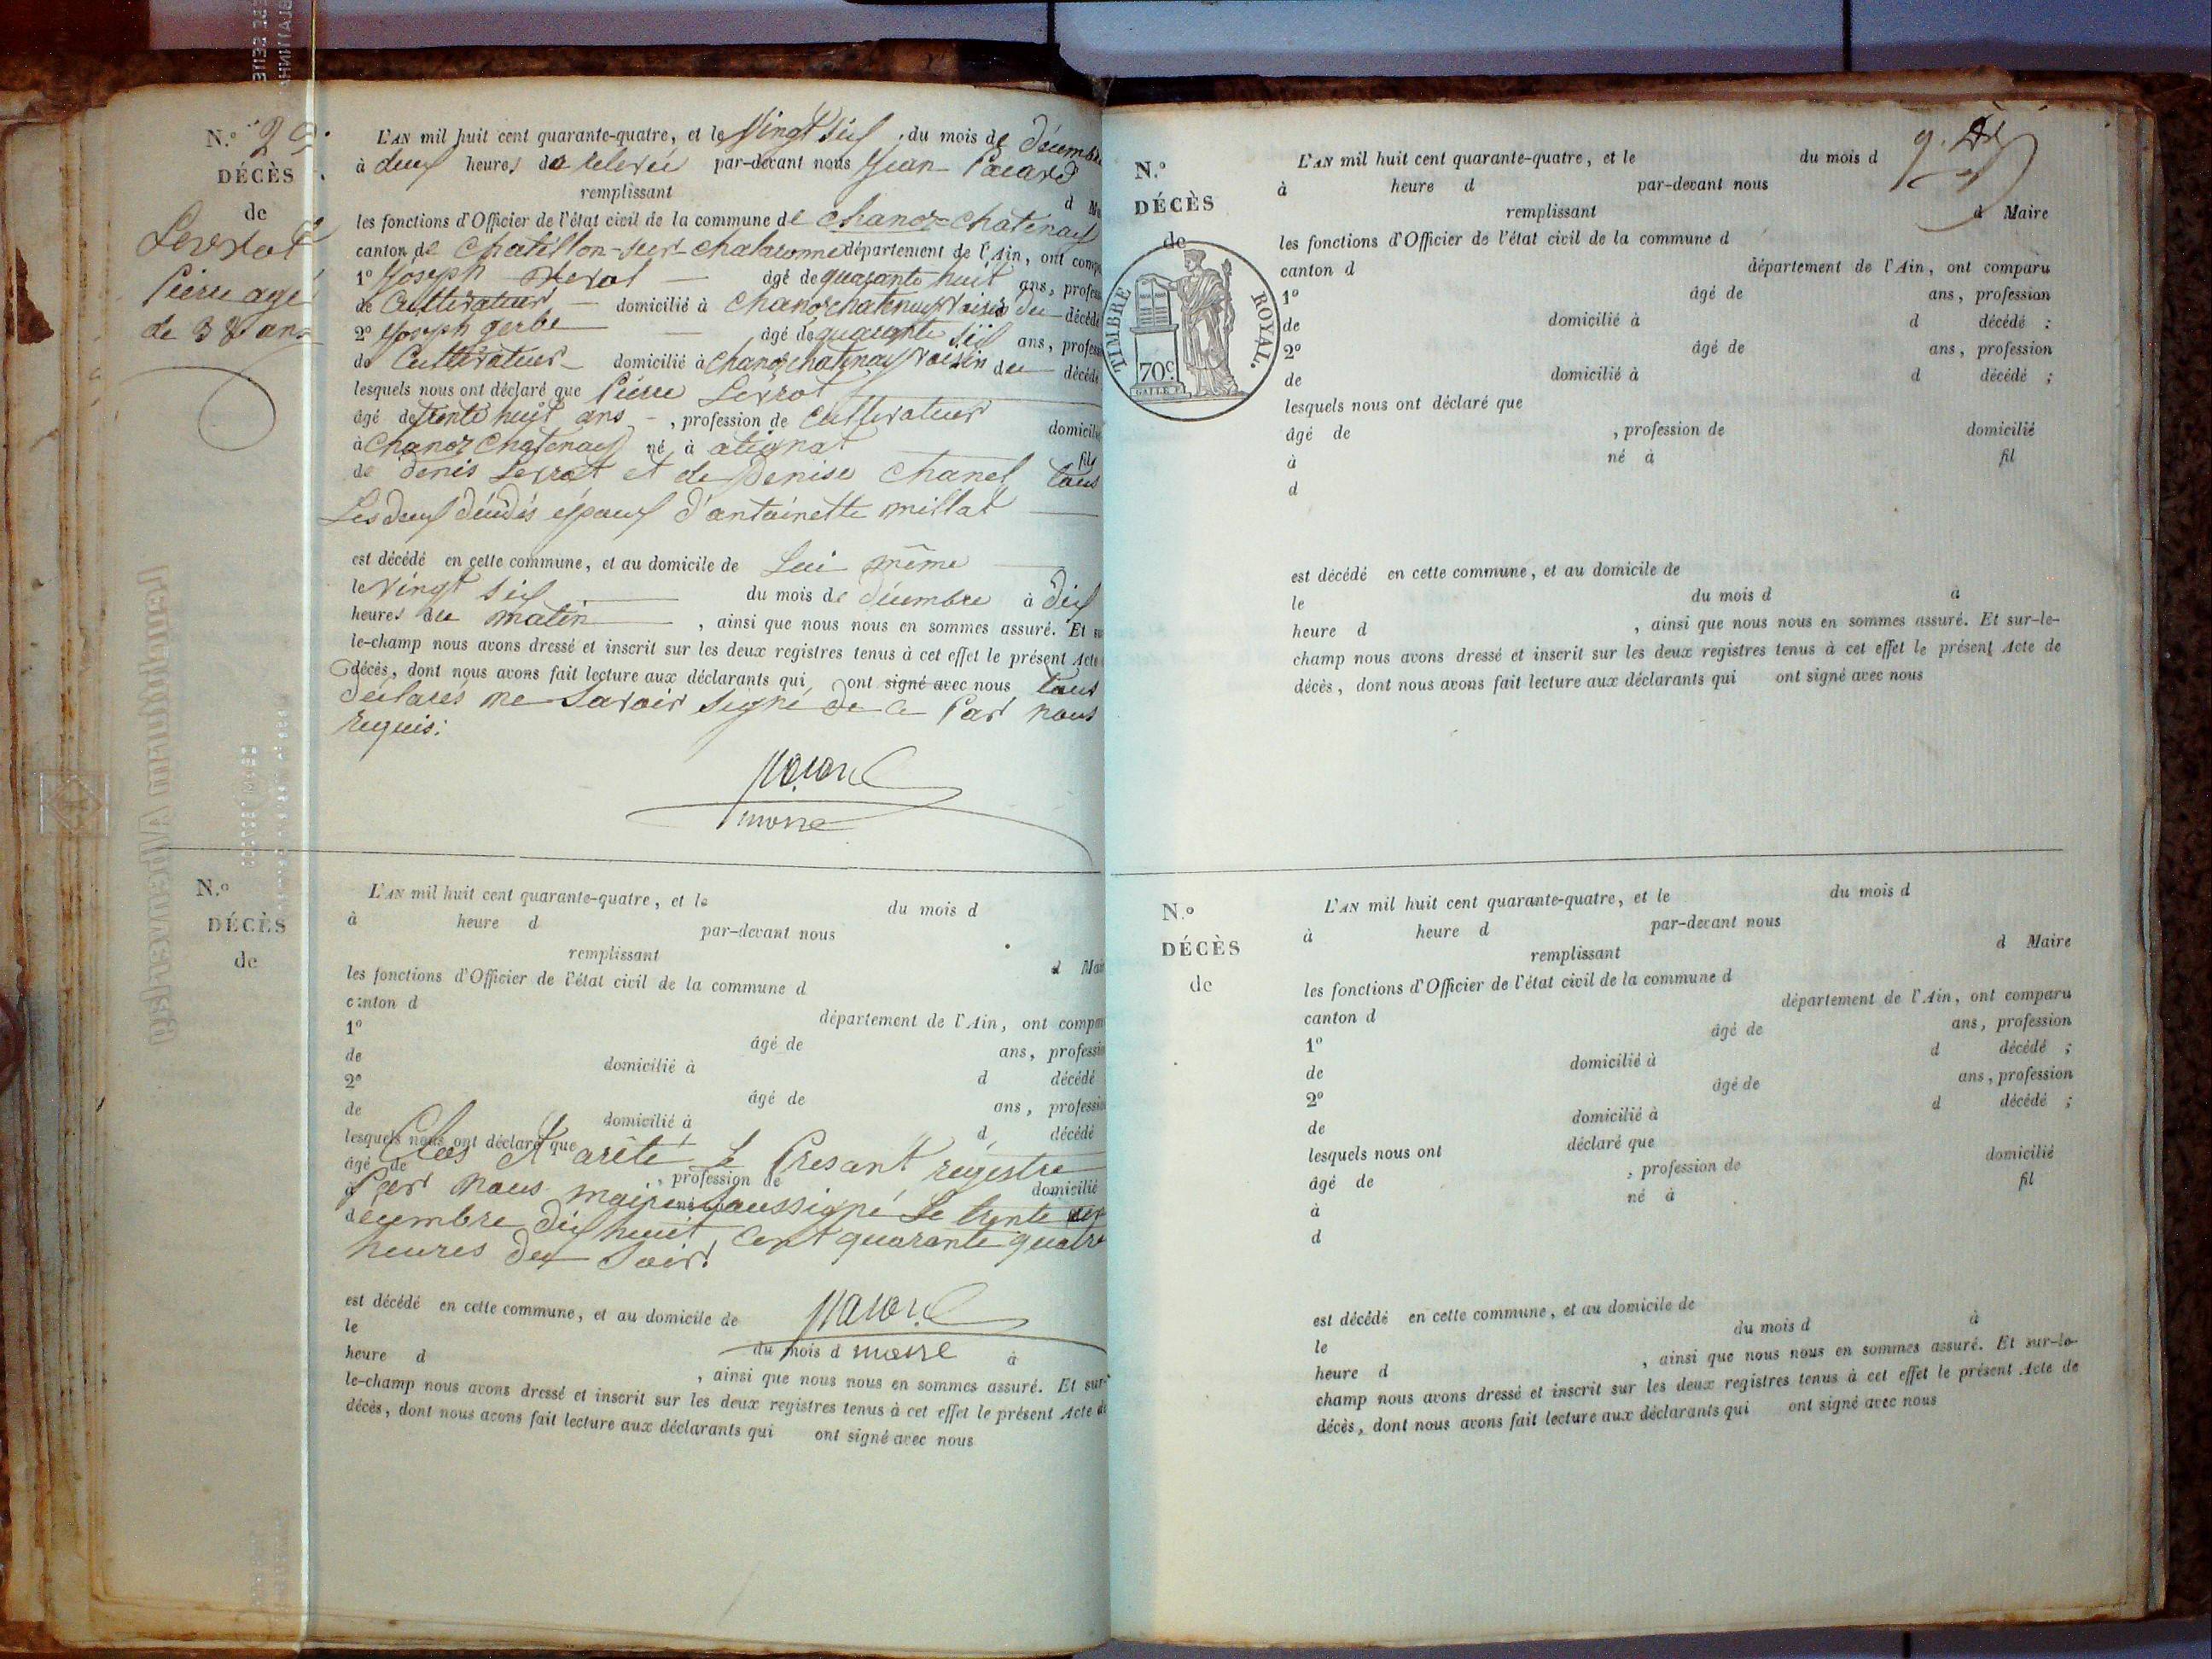 N.° 29.
DÉCÈS
de
Lerrot
Pierre agé
de 38 ans
L'AN mil huit cent quarante-quatre, et le Vingt Six du mois de décembre
à deux heures de relevée par-devant nous Jean Pacard
remplissant d
les fonctions d'Officier de l'état civil de la commune de Chanoz-Chatenay
canton de Chatillon-sur-Chalaronne département de l'Ain, ont
1° Joseph âgé de quarante huit ans,
de Cultivateur domicilié à Chanoz chatenay Voisin du décédé
2° Joseph gerbe âgé de quarante Six ans,
de Cultivateur domicilié à Chanoz chatenay Voisin du décédé
lesquels nous ont déclaré que Pierre Lerrot
âgé de trente huit ans, profession de Cultivateur domicilié
à Chanoz Chatenay né à atignat fils
de denis Lerrot et de Denise Chanel tous
Les deux décédés époux d'antoinette millat
est décédé en cette commune, et au domicile de Lui même
le Vingt Six du mois de décembre à dix
heures du matin, ainsi que nous nous en sommes assuré. Et
le-champ nous avons dressé et inscrit sur les deux registres tenus à cet effet le présent Acte
décès, dont nous avons fait lecture aux déclarants qui ont signé avec nous tous
déclarés ne Savoir Signé de ce Par nous
requis:
Pacard
maire
N.°
DÉCÈS
de
L'AN mil huit cent quarante-quatre, et le du mois d
à heure d par-devant nous
remplissant d Maire
les fonctions d'Officier de l'état civil de la commune d
canton d département de l'Ain, ont
1° âgé de ans, profession
de domicilié à d décédé
2° âgé de ans, profession
de domicilié à d décédé
lesquels nous ont déclaré que
Clos et arêté Le Presant regestre
âgé de , profession de domicilié
Par nous maire Soussigné Le trente
décembre dix huit cent quarante quatre
heures du Soir.
est décédé en cette commune, et au domicile de
Pacard
le du mois d à
maire
heure d , ainsi que nous nous en sommes assuré. Et sur-
le-champ nous avons dressé et inscrit sur les deux registres tenus à cet effet le présent Acte de
décès, dont nous avons fait lecture aux déclarants qui ont signé avec nous
N.°
DÉCÈS
de
TIMBRE ROYAL.
70c
L'AN mil huit cent quarante-quatre, et le du mois d
à heure d par-devant nous
remplissant d Maire
les fonctions d'Officier de l'état civil de la commune d
canton d département de l'Ain, ont comparu
1° âgé de ans, profession
de domicilié à d décédé ;
2° âgé de ans, profession
de domicilié à d décédé ;
lesquels nous ont déclaré que
âgé de , profession de domicilié
à né à fil
d
est décédé en cette commune, et au domicile de
le du mois d à
heure d , ainsi que nous nous en sommes assuré. Et sur-le-
champ nous avons dressé et inscrit sur les deux registres tenus à cet effet le présent Acte de
décès, dont nous avons fait lecture aux déclarants qui ont signé avec nous
N.°
DÉCÈS
de
L'AN mil huit cent quarante-quatre, et le du mois d
à heure d par-devant nous
remplissant d Maire
les fonctions d'Officier de l'état civil de la commune d
canton d département de l'Ain, ont comparu
1° âgé de ans, profession
de domicilié à d décédé ;
2° âgé de ans, profession
de domicilié à d décédé ;
lesquels nous ont déclaré que
âgé de , profession de domicilié
à né à fil
d
est décédé en cette commune, et au domicile de
le du mois d à
heure d , ainsi que nous nous en sommes assuré. Et sur-le-
champ nous avons dressé et inscrit sur les deux registres tenus à cet effet le présent Acte de
décès, dont nous avons fait lecture aux déclarants qui ont signé avec nous